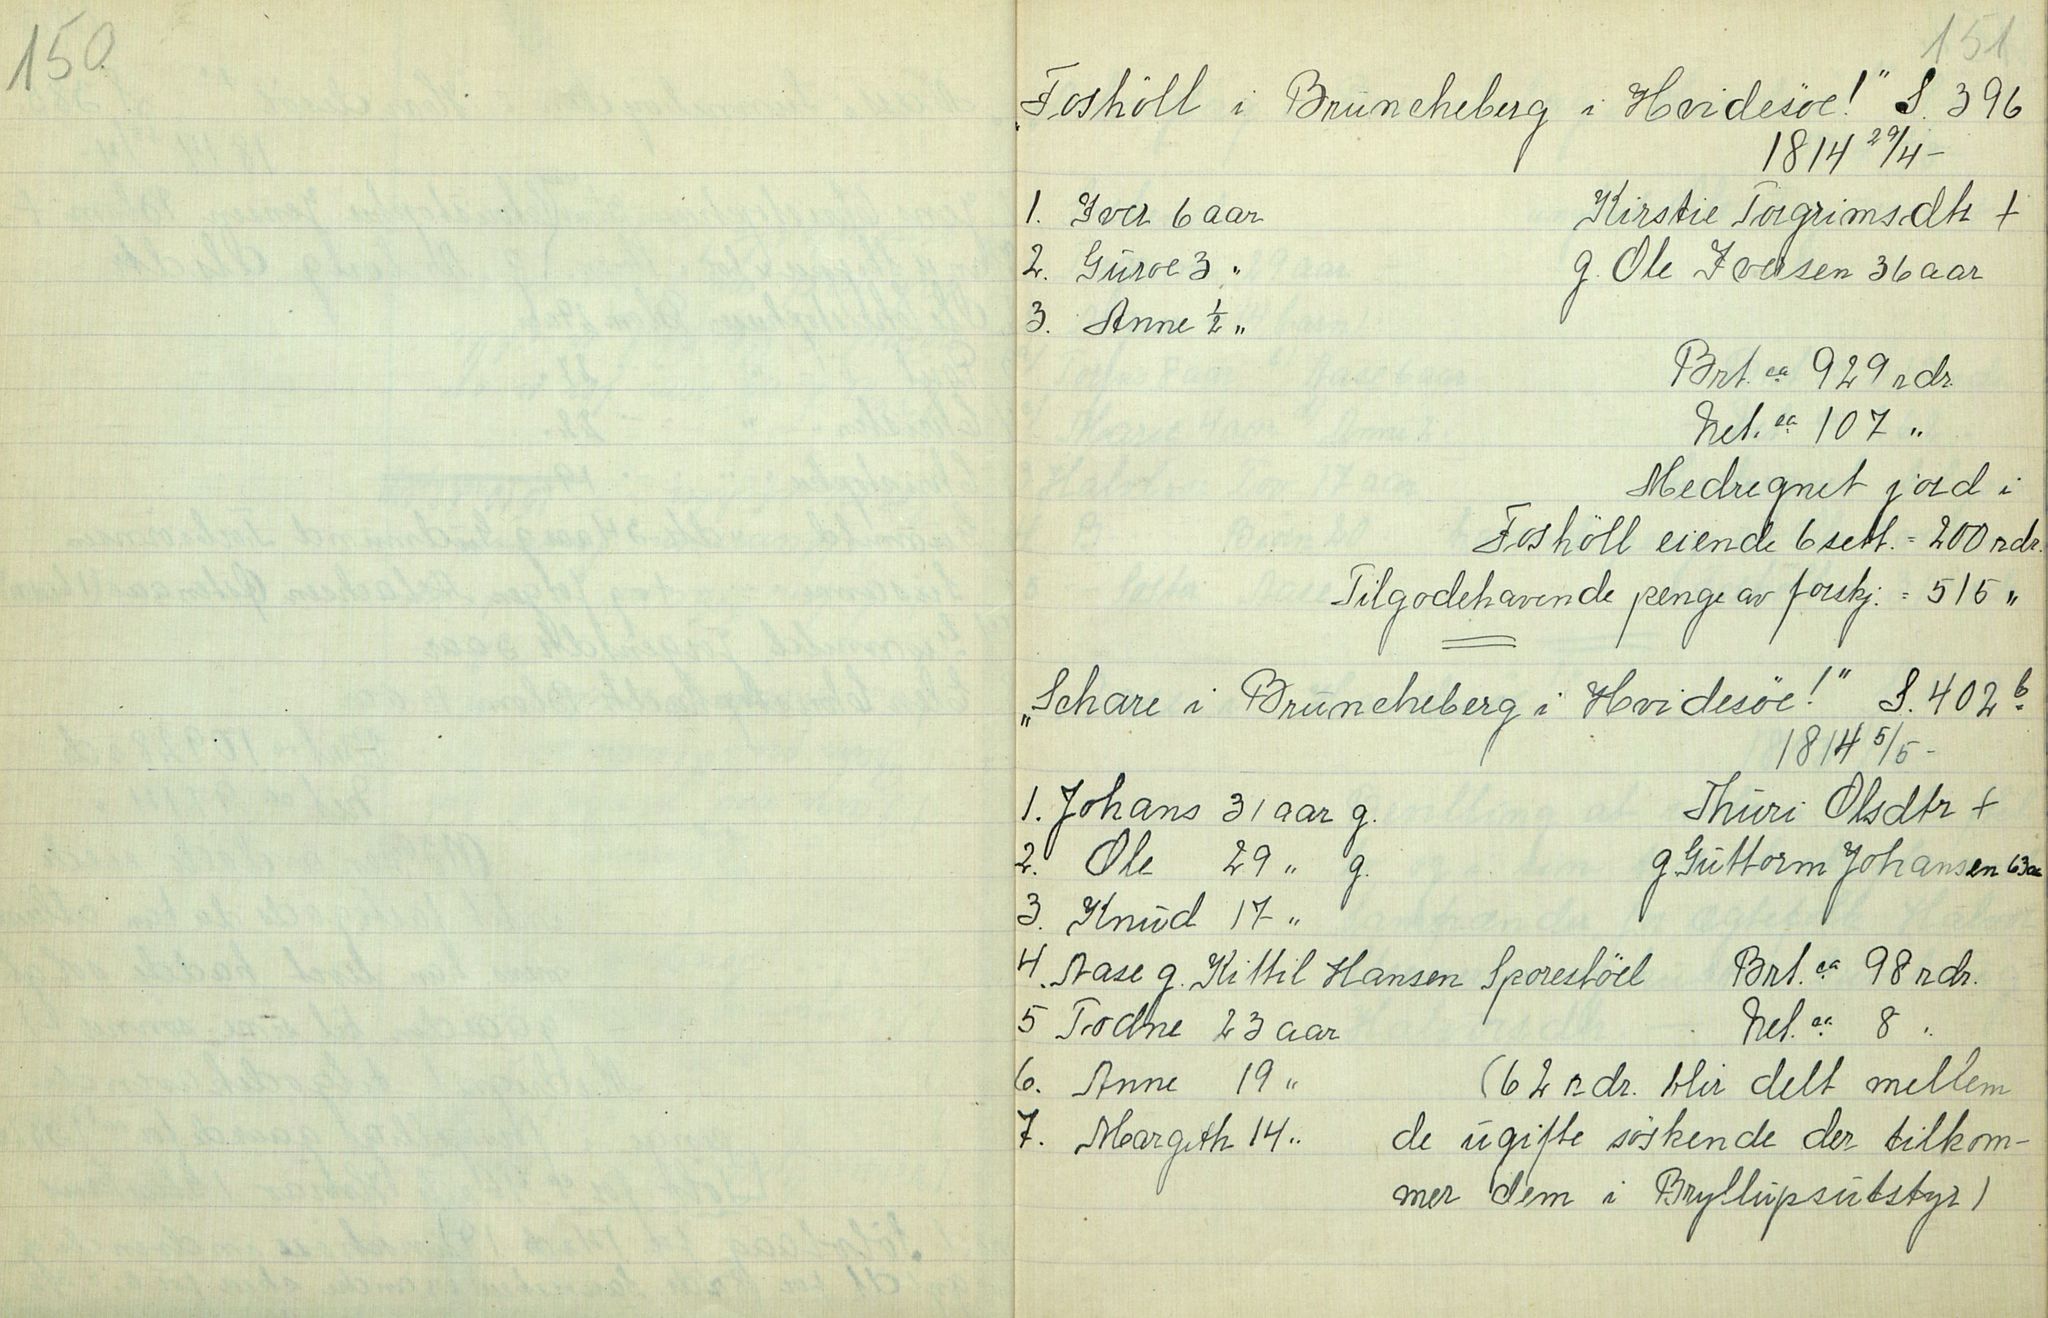 150
151
"Foshöll i Brüncheberg i Hvidesöe!" S. 396
1814 29/4 -
1. Iver 6 aar Kirstie Torgrimsdtr +
2. Güroe 3 " g. Ole Iversen 36 aar
3. Anne ½ "
Brt. ca 929 rdr.
Net. ca 107 "
Medregnet jord i
Foshöll eiende 6 sett. = 200 rdr.
Tilgodehavende penge av forskj. = 515 "
"Schare i Brüncheberg i Hvidesöe!" S. 402 b
1814 5/5 -
1. Johans 31 aar g. Thüri Olsdtr +
2. Ole 29 " g. g. Güttorm Johansen 63 aar
3. Knüd 17 "
4. Aase g. Kittil Hansen Sporestöel Brt. ca 98 rdr.
5 Todne 23 aar Net. ca 8 "
6. Anne 19 " (62 rdr. blir delt mellem
7. Margith 14 " de ügifte söskende der tilkom-
mer dem i Bryllüpsütstyr)